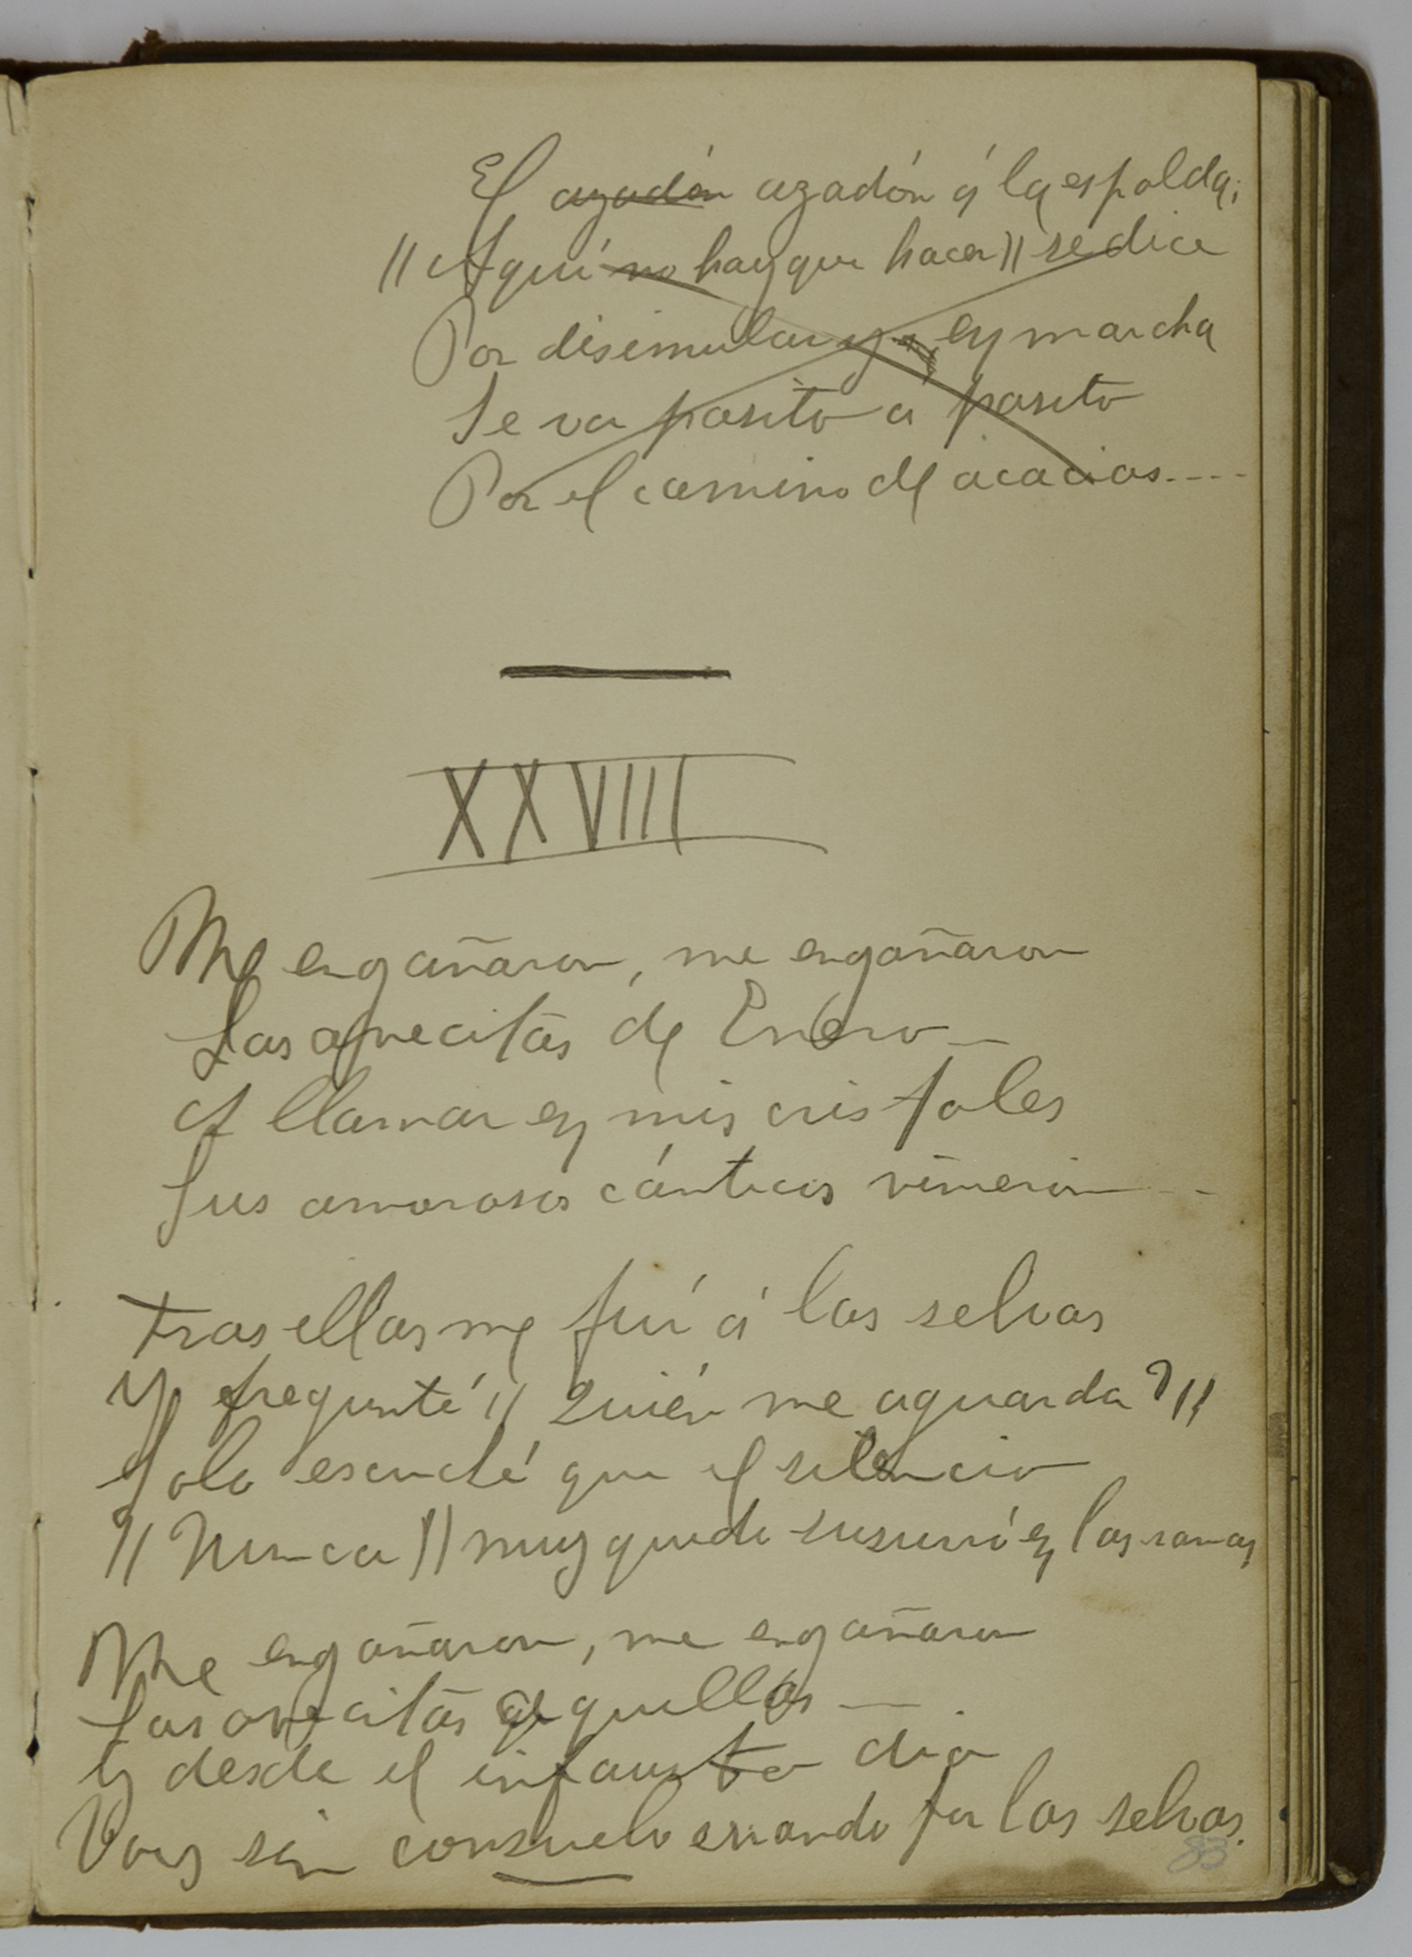 El azadón azadón á la espalda;
"Aquí no hay que hacer" se dice
Por disimular y en marcha
Se va pasito á pasito
Por el camino de acacias....
XXVIII
Me engañaron, me engañaron
Las avecitas de Enero —
A llamar en mis cristales
Sus amorosos cánticos vinieron...
Tras ellas me fuí á las selvas
Y pregunté "Quién me aguarda?"
Solo escuché que el silencio
"Nunca" muy quedo susurró en las ramas
Me engañaron, me engañaron
Las avecitas aquellas —
Y desde el infausto dia
Voy sin consuelo errando por las selvas.
83